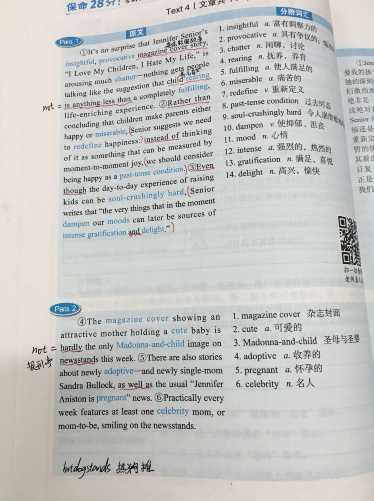 保命 28分!
Text 4
原文
分阶词汇
Para 1
①It's an surprise that Jennifer Senior's
insightful, provocative magazine cover story,
"I Love My Children, I Hate My Life," is
arousing much chatter—nothing gets people
talking like the suggestion that child rearing
not = is anything less than a completely fulfilling,
life-enriching experience. ②Rather than
concluding that children make parents either
happy or miserable, Senior suggests we need
to redefine happiness: instead of thinking
of it as something that can be measured by
moment-to-moment joy, we should consider
being happy as a past-tense condition. ③Even
though the day-to-day experience of raising
kids can be soul-crushingly hard, Senior
writes that "the very things that in the moment
dampen our moods can later be sources of
intense gratification and delight."
1. insightful a. 富有洞察力的
2. provocative a.
3. chatter n. 闲聊,讨论
4. rearing n. 抚养,养育
5. fulfilling a. 使人满足的
6. miserable a. 痛苦的
7. redefine v. 重新定义
8. past-tense condition 过去的
9. soul-crushingly hard
10. dampen v. 使抑郁,沮丧
11. mood n. 心情
12. intense a. 强烈的,热烈的
13. gratification n. 满足,喜悦
14. delight n. 高兴,愉快
Para 2
④The magazine cover showing an
attractive mother holding a cute baby is
not = hardly the only Madonna-and-child image on
newsstands this week. ⑤There are also stories
about newly adoptive—and newly single-mom
Sandra Bullock, as well as the usual "Jennifer
Aniston is pregnant" news. ⑥Practically every
week features at least one celebrity mom, or
mom-to-be, smiling on the newsstands.
1. magazine cover 杂志封面
2. cute a. 可爱的
3. Madonna-and-child 圣母与圣婴
4. adoptive a. 收养的
5. pregnant a. 怀孕的
6. celebrity n. 名人
hotdogstands 热狗摊